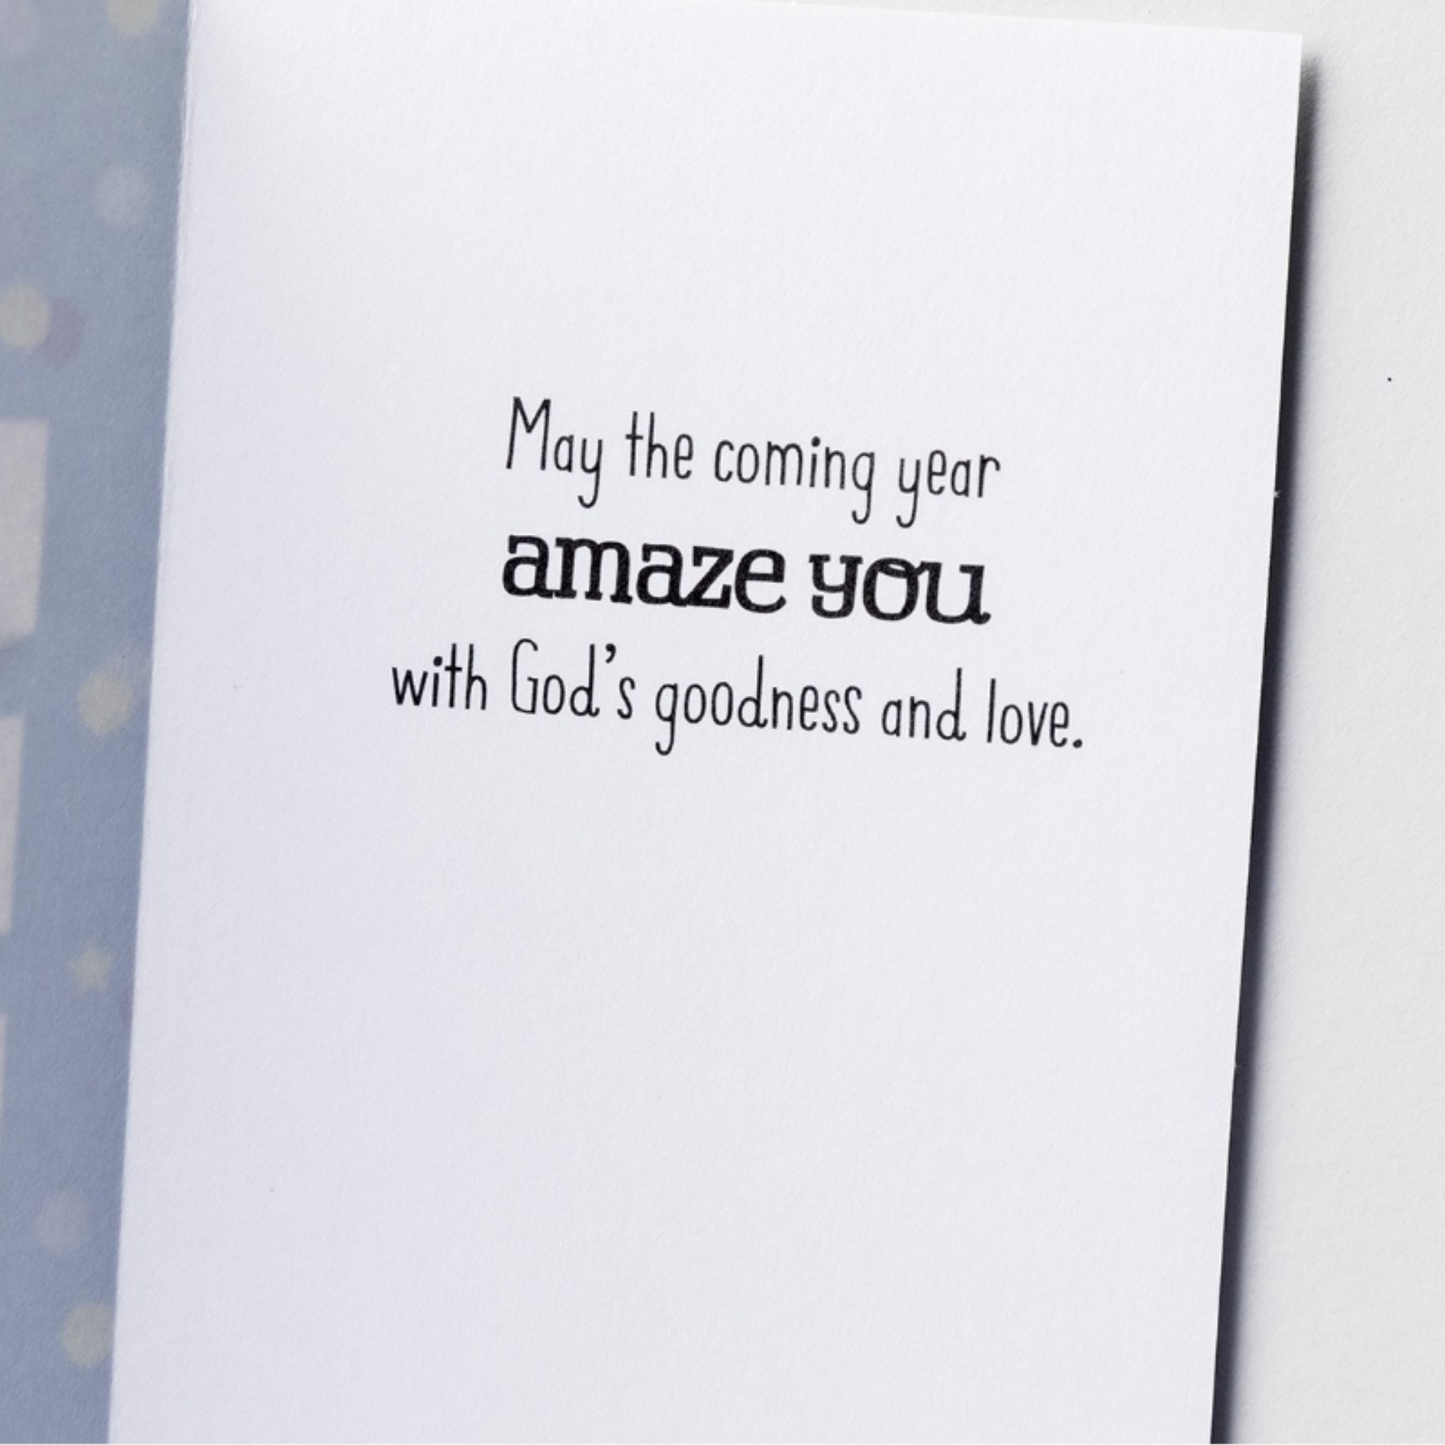 May the coming year
amaze you
with God's goodness and love.